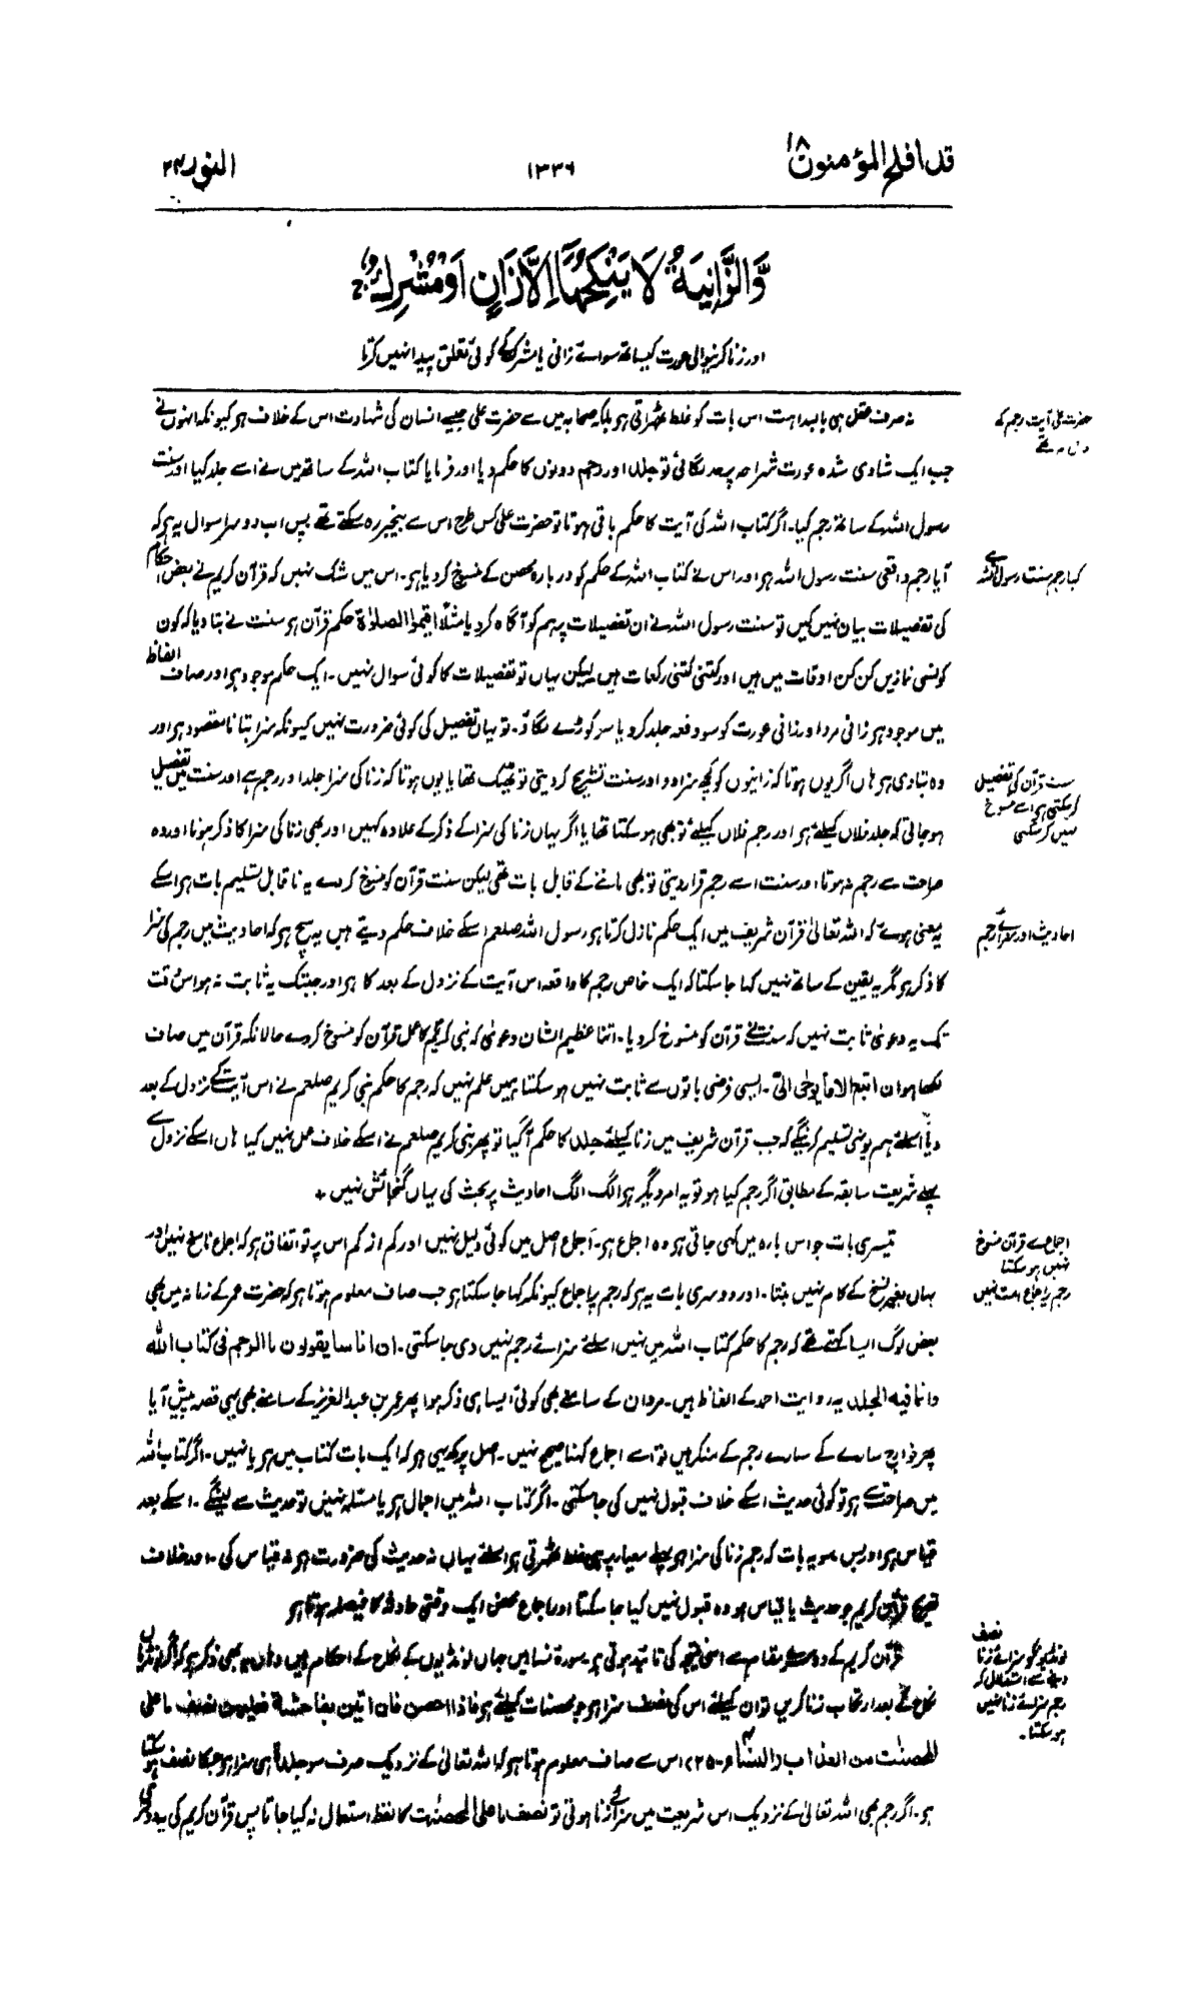 قد افلح المؤمنون ۱۸
۱۳۳۶
النور ۲۴
وَّالزَّانِيَةُ لَا يَنْكِحُهَآ اِلَّا زَانٍ اَوْ مُشْرِكٌ ۚ
اور زنا کرنیوالی عورت کیساتھ سوائے زانی یا مشرک کے کوئی تعلق پیدا نہیں کرتا
نہ صرف عقل ہی بالبداہت اس بات کو غلط ٹھہراتی ہو بلکہ صحابہ میں سے حضرت علی جیسے انسان کی شہادت اس کے خلاف ہو کیونکہ انہوں نے
جب ایک شادی شدہ عورت شراحہ پر حد لگائی تو جلد اور رجم دونوں کا حکم دیا اور فرمایا کتاب اللہ کے ساتھ میں نے اسے جلد کیا اور سنت
رسول اللہ کے ساتھ رجم کیا۔ اگر کتاب اللہ کی آیت کا حکم باقی ہوتا تو حضرت علی کس طرح اس سے بیخبر رہ سکتے تھے پس اب دوسرا سوال یہ ہو کہ
آیا رجم واقعی سنت رسول اللہ ہو اور اس نے کتاب اللہ کے حکم کو دربارہ محصن کے منسوخ کر دیا ہو۔ اس میں شک نہیں کہ قرآن کریم نے بعض احکام
کی تفصیلات بیان نہیں کیں تو سنت رسول اللہ نے ان تفصیلات پر ہم کو آگاہ کر دیا مثلاً اقیموا الصلوٰة حکم قرآن ہو سنت نے بتا دیا کہ کون
کونسی نمازیں کن کن اوقات میں ہیں اور کتنی کتنی رکعات ہیں لیکن یہاں تو تفصیلات کا کوئی سوال نہیں۔ ایک حکم موجود ہو اور صاف الفاظ
میں موجود ہو زانی مرد اور زانی عورت کو سو دفعہ جلد کرو یا سو کوڑے لگاؤ۔ تو یہاں تفصیل کی کوئی ضرورت نہیں کیونکہ سزا بتانا مقصود ہو اور
وہ بتادی ہو ہاں اگر یوں ہوتا کہ زانیوں کو کچھ سزا دو اور سنت تشریح کر دیتی تو ٹھیک تھا یا یوں ہوتا کہ زنا کی سزا جلد اور رجم ہے اور سنت میں تفصیل
ہو جاتی کہ جلد فلاں کیلئے ہو اور رجم فلاں کیلئے تو بھی ہو سکتا تھا یا اگر یہاں زنا کی سزا کے ذکر کے علاوہ کہیں اور بھی زنا کی سزا کا ذکر ہوتا اور وہ
صراحت سے رجم نہ ہوتا اور سنت اسے رجم قرار دیتی تو بھی ماننے کے قابل بات تھی لیکن سنت قرآن کو منسوخ کر دے یہ ناقابل تسلیم بات ہو اسکے
یہ معنی ہوئے کہ اللہ تعالیٰ قرآن شریف میں ایک حکم نازل کرتا ہو رسول اللہ صلعم اسکے خلاف حکم دیتے ہیں یہ سچ ہو کہ احادیث میں رجم کی سزا
کا ذکر ہو مگر یہ یقین کے ساتھ نہیں کہا جا سکتا کہ ایک خاص رجم کا واقعہ اس آیت کے نزول کے بعد کا ہو اور جبتک یہ ثابت نہ ہو اس وقت
تک یہ دعویٰ ثابت نہیں کہ سنت نے قرآن کو منسوخ کر دیا۔ اتنا عظیم الشان دعویٰ کہ نبی کریم کا عمل قرآن کو منسوخ کر دے حالانکہ قرآن میں صاف
لکھا ہو ان اتبع الا ما یوحی الی۔ ایسی فرضی باتوں سے ثابت نہیں ہو سکتا ہمیں علم نہیں کہ رجم کا حکم نبی کریم صلعم نے اس آیت کے نزول کے بعد
دیا اسلئے ہم یونہی تسلیم کرینگے کہ جب قرآن شریف میں زنا کیلئے جلد کا حکم آگیا تو پھر نبی کریم صلعم نے اسکے خلاف عمل نہیں کیا ہاں اسکے نزول سے
پہلے شریعت سابقہ کے مطابق اگر رجم کیا ہو تو یہ امر دیگر ہو الگ الگ احادیث پر بحث کی یہاں گنجائش نہیں +
تیسری بات جو اس بارہ میں کہی جاتی ہو وہ اجماع ہو۔ اجماع اصل میں کوئی دلیل نہیں اور کم از کم اس پر تو اتفاق ہو کہ اجماع ناسخ نہیں اور
یہاں بغیر نسخ کے کام نہیں بنتا۔ اور دوسری بات یہ ہو کہ رجم پر اجماع کیونکر کہا جا سکتا ہو جب صاف معلوم ہوتا ہو کہ حضرت عمر کے زمانہ میں بھی
بعض لوگ ایسا کہتے تھے کہ رجم کا حکم کتاب اللہ میں نہیں اسلئے سزائے رجم نہیں دی جا سکتی۔ ان اناسا یقولون ما الرجم فی کتاب اللہ
وانما فیہ الجلد یہ روایت احمد کے الفاظ ہیں۔ مروان کے سامنے بھی کوئی ایسا ہی ذکر ہوا پھر عمر بن عبد العزیز کے سامنے بھی یہی قصہ پیش آیا
پھر خوارج سارے کے سارے رجم کے منکر ہیں تو اسے اجماع کہنا صحیح نہیں۔ اصل پرکھ یہی ہو کہ ایک بات کتاب میں ہو یا نہیں۔ اگر کتاب اللہ
میں صراحت سے ہو تو کوئی حدیث اسکے خلاف قبول نہیں کی جا سکتی۔ اگر کتاب اللہ میں اجمال ہو یا مسئلہ نہیں تو حدیث سے لینگے۔ اسکے بعد
قیاس ہو اور پس سو یہ بات کہ رجم زنا کی سزا ہو پہلے معیار پر ہی غلط ٹھہرتی ہو اسلئے یہاں نہ حدیث کی ضرورت ہو نہ قیاس کی۔ اور خلاف
تصریح قرآن کریم جو حدیث یا قیاس ہو وہ قبول نہیں کیا جا سکتا اور اجماع محض ایک وقتی حادثہ کا فیصلہ ہوتا ہو
قرآن کریم کے دوسرے مقام سے اسی نتیجہ کی تائید ہوتی ہو۔ سورة نساء میں جہاں لونڈیوں کے نکاح کے احکام ہیں وہاں یہ بھی ذکر ہو کہ اگر لونڈیاں
نکاح کے بعد ارتکاب زنا کریں تو ان کیلئے اس کی نصف سزا ہو جو محصنات کیلئے ہو فاذا احصن فان اتین بفاحشة فعلیهن نصف ما علی
المحصنٰت من العذاب (النساء ۔ ۲۵) اس سے صاف معلوم ہوتا ہو کہ اللہ تعالیٰ کے نزدیک صرف سو جلد ہی سزا ہو جسکا نصف ہو سکتا
ہو۔ اگر رجم بھی اللہ تعالیٰ کے نزدیک اس شریعت میں سزائے زنا ہوتی تو نصف ما علی المحصنٰت کا لفظ استعمال نہ کیا جاتا پس قرآن کریم کی یہ
حضرت علی آیت رجم کے
کیا رجم سنت رسول اللہ ہے
سنت قرآن کی تفصیل
کر سکتی ہو اسے منسوخ
نہیں کر سکتی
احادیث اور سزائے رجم
اجماع سے قرآن منسوخ
نہیں ہو سکتا
رجم پر اجماع امت نہیں
نصف
لونڈیوں کو سزائے زنا
دینے سے استدلال کہ
رجم سزائے زنا نہیں
ہو سکتا۔